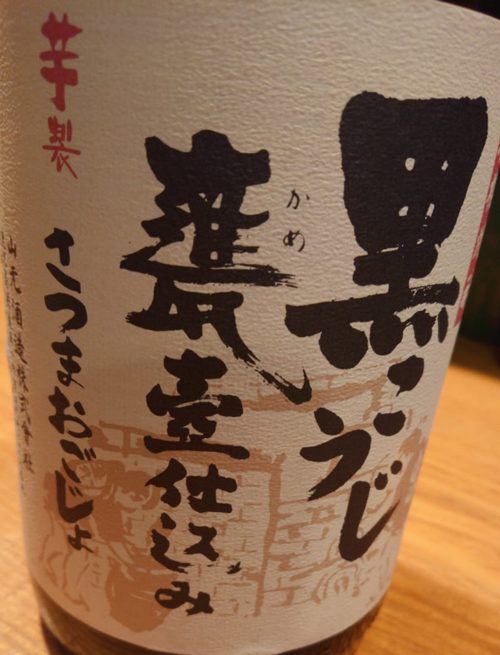 黒こうじ
かめ
甕壷仕込み
芋製
さつまおごじょ
山元酒造株式會社